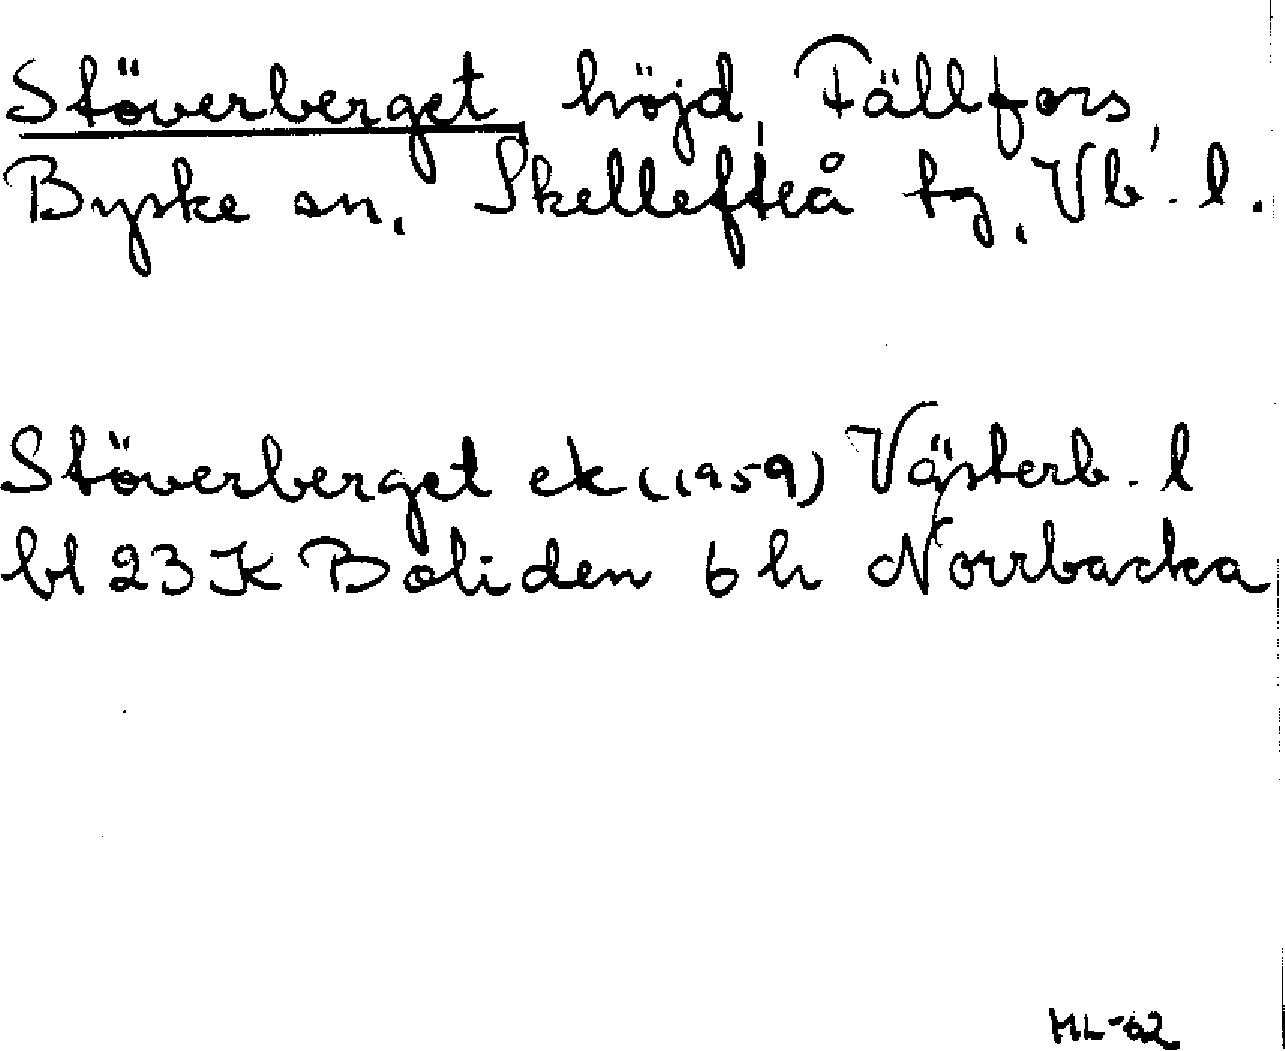 Stöverberget, höjd, Fällfors,
Byske sn, Skellefteå tg, Vb. l.
Stöverberget ek (1959) Västerb. l
bl 23 K Boliden 6 h Norrbacka
ML-62